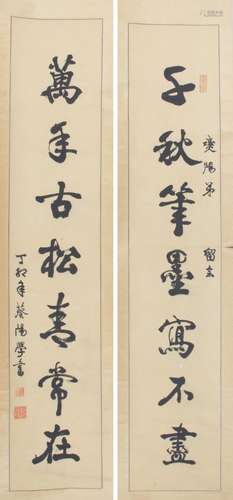 千秋筆墨寫不盡
葵陽弟 留玄
萬年古松青常在
丁卯年葵陽學書